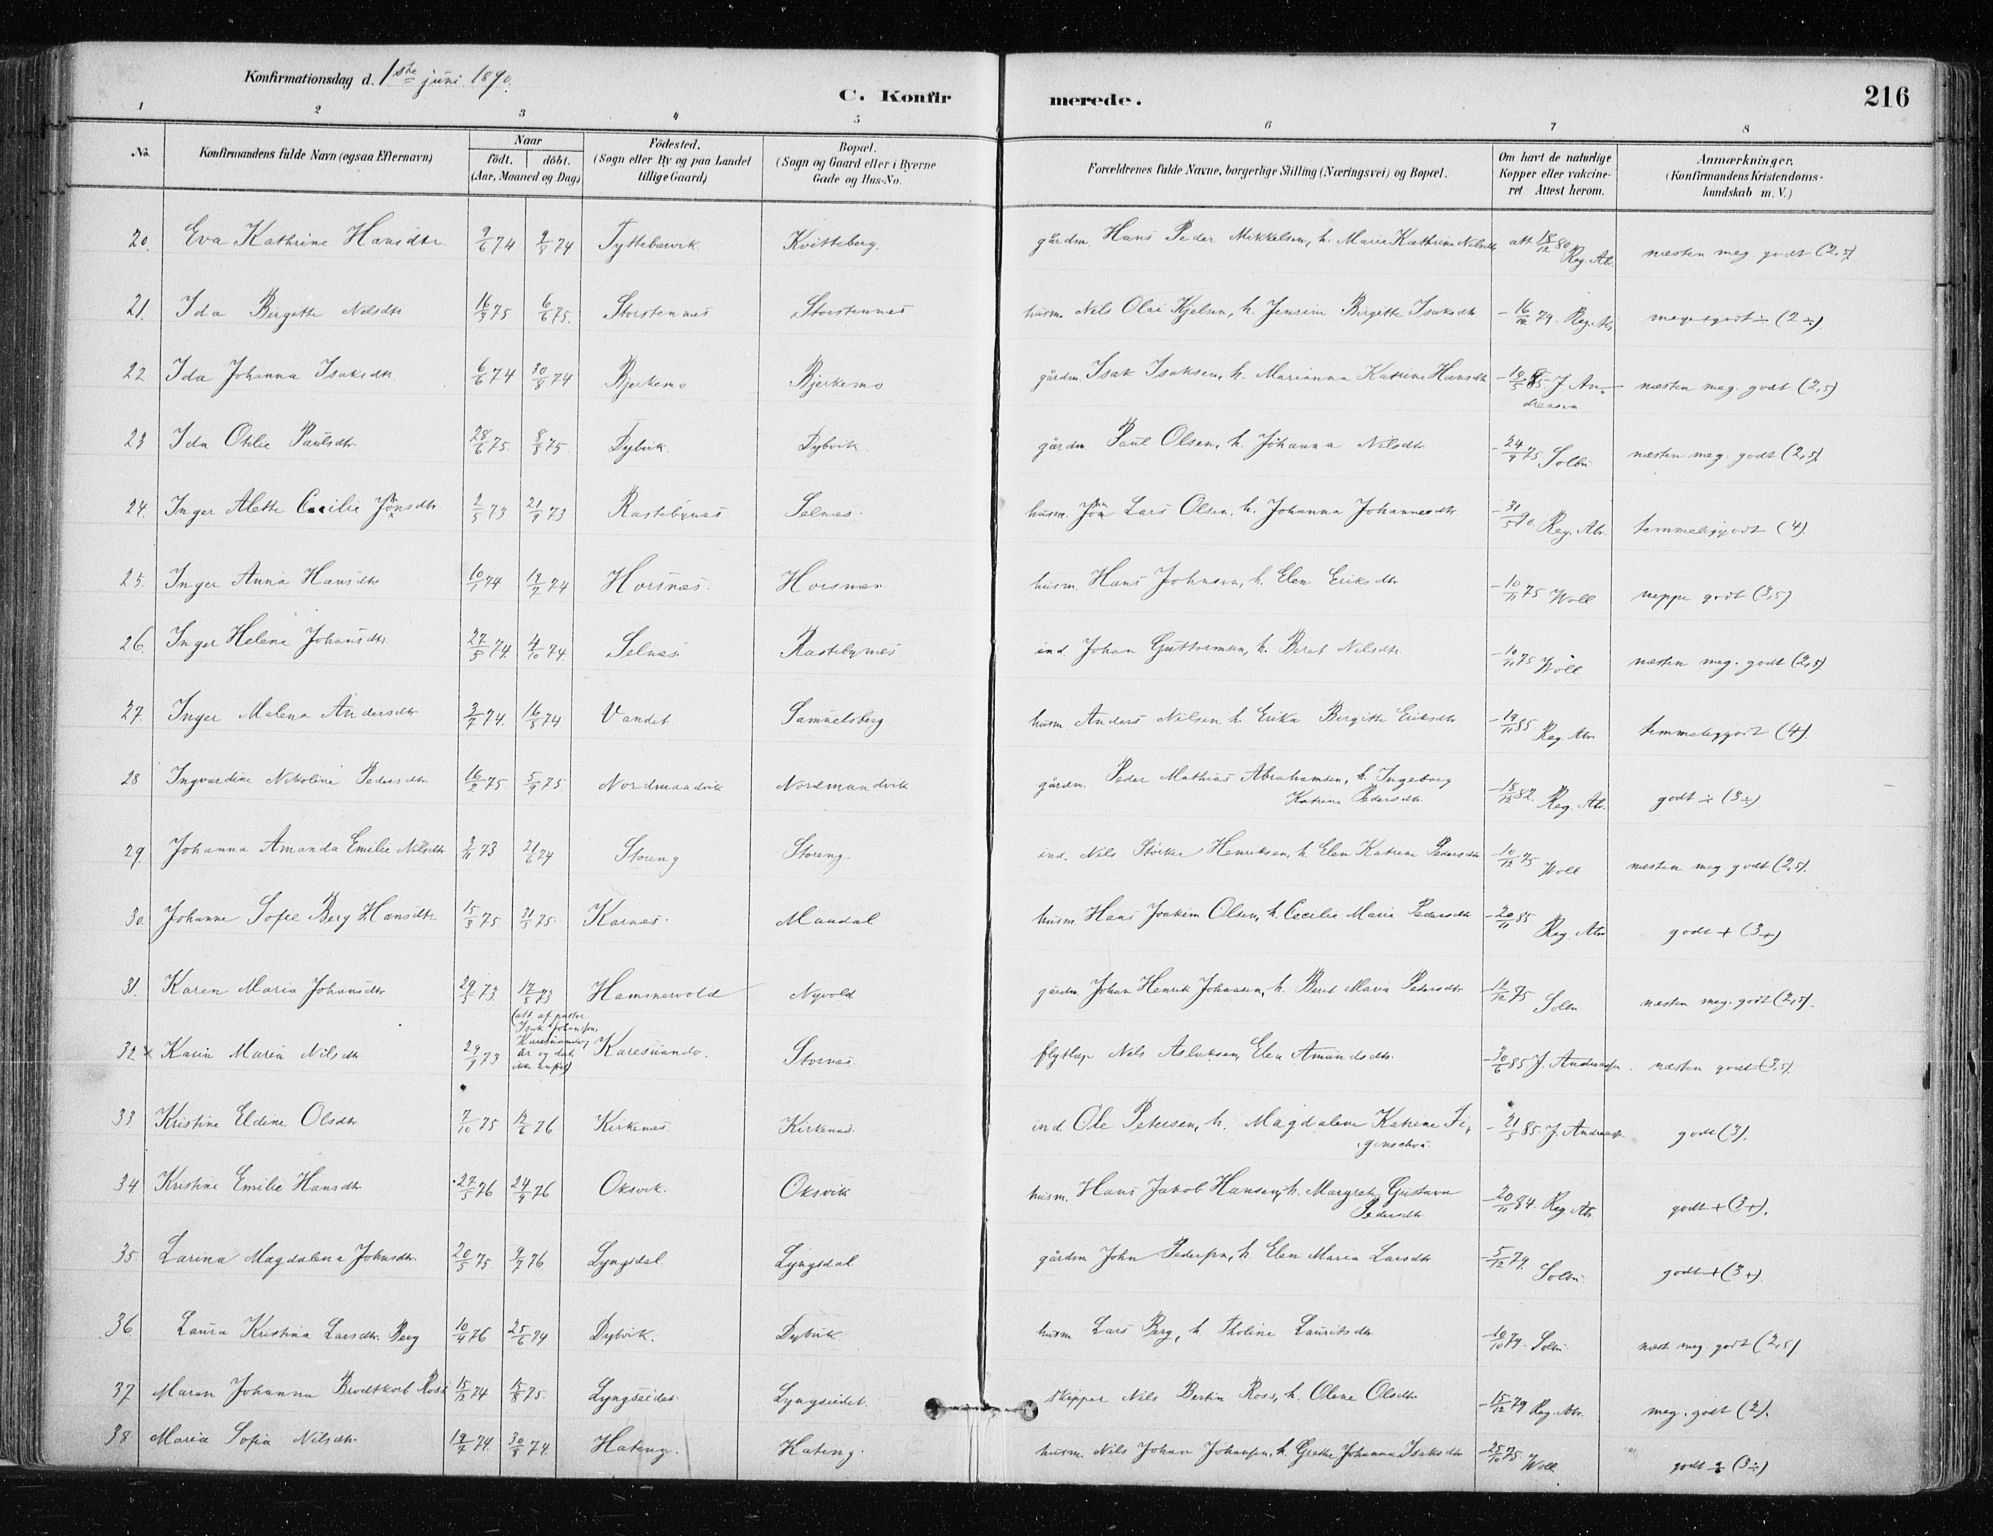 Konfirmationsdag d. 1ste juni 1890.
C. Konfirmerede.
216
1 2 3 4 5 6 7 8
No.
Konfirmandens fulde Navn (ogsaa Efternavn)
Naar
födt. döbt.
(Aar, Maaned og Dag)
Födested.
(Sogn eller By og paa Landet
tillige Gaard)
Bopæl.
(Sogn og Gaard eller i Byerne
Gade og Hus-No.
Forældrenes fulde Navne, borgerlige Stilling (Næringsvei) og Bopæl.
Om havt de naturlige
Kopper eller vakcine-
ret. Attest herom.
Anmærkninger.
(Konfirmandens Kristendoms-
kundskab m. V.)
20. Eva Kathrine Hansdtr 9/6 74 Tyttebærvik Kvitteberg. gårdm. Hans Peder Mikkelsen, h. Maria Kathrine Nilsdtr att 18/12 80 Reg. Ab. næsten meg godt (2,5)
21. Ida Birgitte Nilsdtr 16/3 75 6/6 75. Storstennes Storstennes husm. Nils Olai Kjelsen, h. Jensine Birgitte Isaksdtr - 16/12 79. Reg. Ab. meget godt ÷ (2÷).
22 Ida Johanna Isaksdtr. 6/6 74 30/8 74 Bjerkemo Bjerkemo gårdm. Isak Isaksen, h. Marianna Katrine Hansdtr - 10/5 85. J. Andreasen næsten meg. godt (2,5)
23 Ida Otilie Paulsdtr. 28/6 75. 8/8 75. Dybvik Dybvik gårdm Paul Olsen, h. Johanna Nilsdtr - 24/9 75 Solbu næsten meg. godt (2,5)
24. Inger Alette Cecilie Jonsdtr 2/5 73 21/9 73 Rastebynes Selnes. husm. Jon Lars Olsen, h. Johanna Johannesdtr - 31/5 90. Reg. Ab. temmelig godt (4).
25. Inger Anna Hansdtr 10/1 74 19/7 74 Horsnæs. Horsnæs husm. Hans Johnsen, h. Elen Eriksdtr - 10/11 75 Woll neppe godt (3,5)
26. Inger Helena Johansdtr 27/5 74. 4/10 74 Selnes. Rastebynes ind Johan Guttormsen, h. Beret Nilsdtr. - 10/11 75 Woll næsten meg. godt (2,5)
27. Inger Malena Andersdtr 3/7 74. 16/8 74 Vandet Samuelsberg husm. Anders Nilsen h. Erika Birgitte Eriksdtr - 19/11 85 Reg. Ab. temmelig godt (4).
28 Ingvardine Nikoline Pedersdtr 16/2 75 5/9 75 Nordmandvik Nordmandvik gårdm. Peder Mathias Abrahamsen, h. Ingeborg Katrine Pedersdtr. - 18/12 82. Reg. Ab. godt ÷ (3÷)
29. Johanna Amanda Emilie Nilsdtr 2/11 73 21/6 74 Storeng Storeng. ind. Nils Störker Henriksen, h. Elen Katrine Pedersdtr - 10/12 75 Woll næsten meg. godt (2,5).
30. Johanne Sofie Berg Hansdtr 15/3 75 31/5 75. Karnes. Mandal husm. Hans Joakim Olsen, h. Cecilie Maria Pedersdtr - 20/11 85 Reg. Ab. godt + (3+)
31. Karen Maria Johansdtr 29/3 73. 17/8 73 Hammervold Nyvold gårdm. Johan Henrik Johansen, h. Beret Maria Pedersdtr - 12/12 75 Solbu næsten meg. godt (2,5).
(att af pastor
32 x Karin Maria Nilsdtr 29/9 73 Karesuando. Stornes flytlap Nils Aslaksen, Elen Amundsdtr. - 30/6 85 J. Andreassen. næsten godt (3,5)
33 Kristine Eldine Olsdtr 7/10 75 Kirkenes Kirkenes. ind Ole Petersen, h. Magdalene Katrine Figenschou - 21/5 85. J. Andreassen godt (3).
34 Kristine Emilie Hansdtr 27/5 76 24/9 76 Oksvik. Oksvik husm. Hans Jakob Hansen, h. Margrete Gustava Pedersdtr - 20/11 84. Reg. Ab. godt + (3+).
35. Larina Magdalena Johnsdtr. 20/5 75. 9/7 76 Lyngsdal Lyngsdal gårdm John Pedersen, h. Elen Maria Larsdtr - 5/12 79. Solbu godt + (3+).
36. Laura Kristina Larsdtr. Berg 10/4 76 25/6 74 Dybvik. Dybvik husm Lars Berg, h. Tholine Lauritsdtr - 10/10 79. Solbu næst. meg. godt (2,5)
37 Maren Johanna Brodtkorb Ross 15/12 74 15/8 75. Lyngseidet. Lyngseidet. skipper Nils Bertin Ross, h. Olene Olsdtr - 15/12 79 Reg. Ab. meg. godt (2).
38. Maria Sofia Nilsdtr. 19/7 74. 30/8 74. Hateng. Hateng. husm. Nils Johan Johansen, h. Grethe Johanna Isaksdtr - 25/10 75 Woll godt ÷ (3÷)